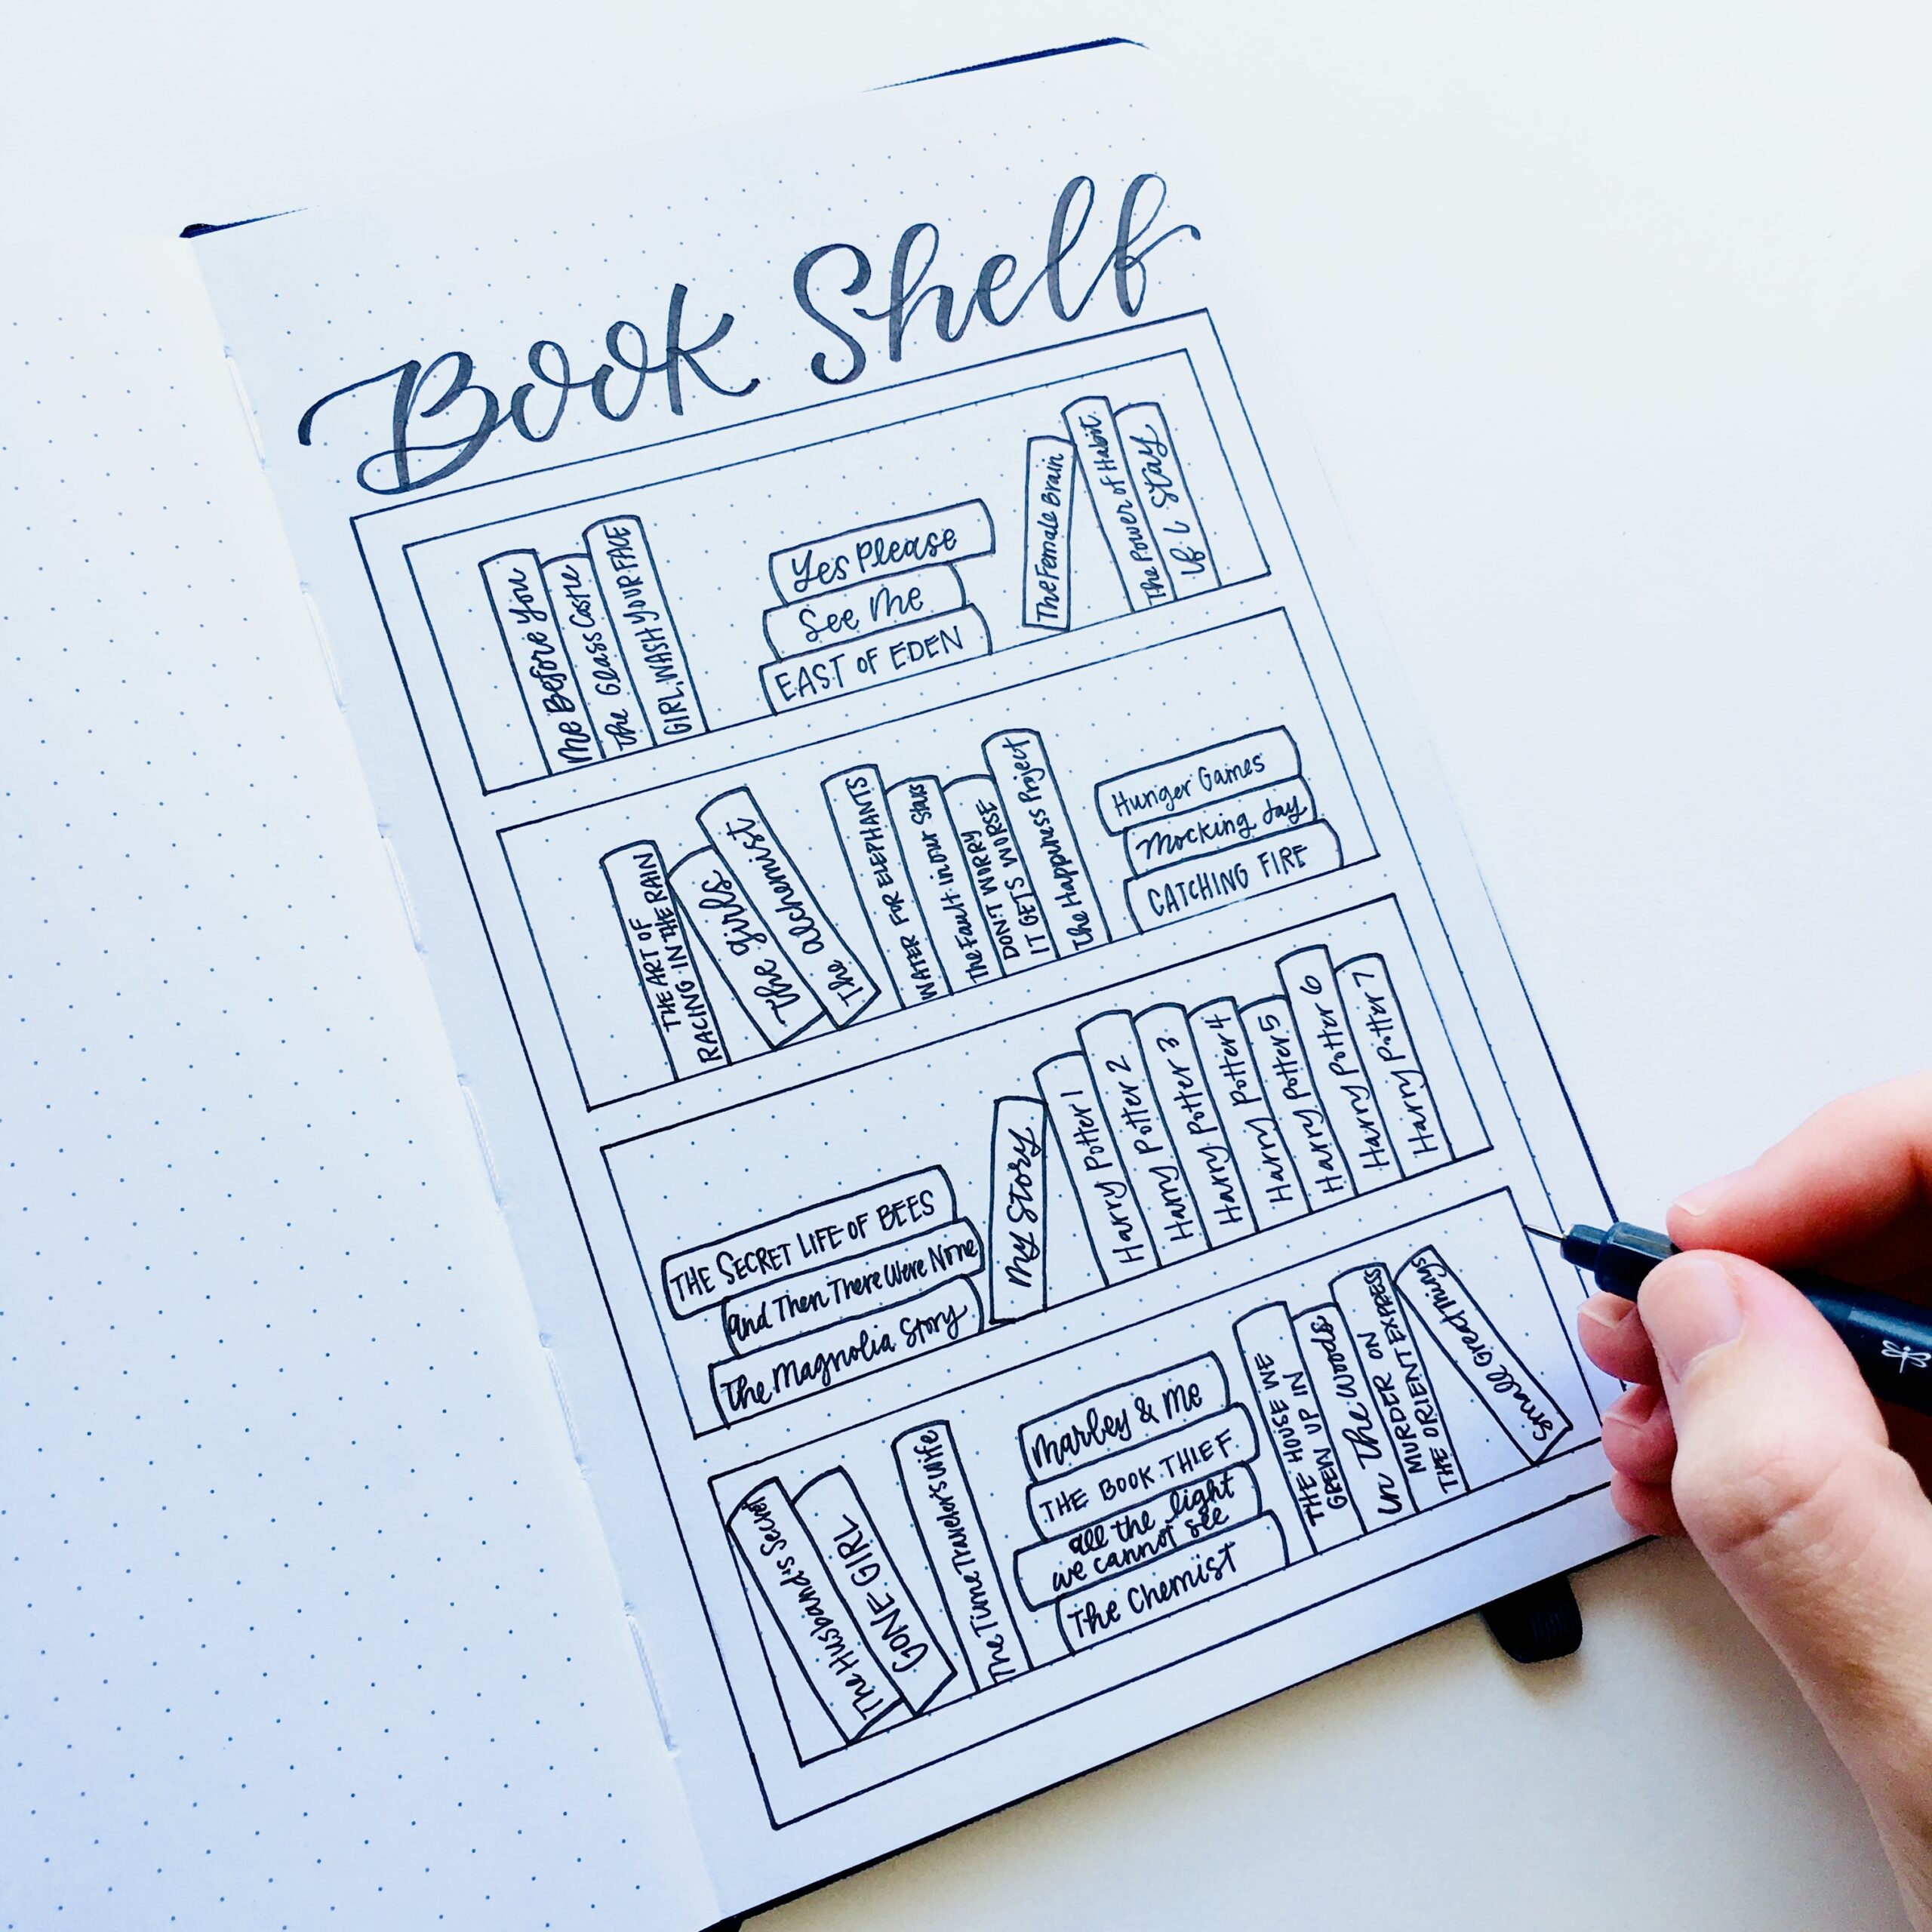 Book Shelf
Me Before You
The Glass Castle
GIRL, WASH YOUR FACE
Yes Please
See Me
EAST OF EDEN
The Female Brain
The Power of Habit
If I Stay
THE ART OF
RACING IN THE RAIN
The girls
The alchemist
WATER FOR ELEPHANTS
The Fault in Our Stars
DON'T WORRY
IT GETS WORSE
The Happiness Project
Hunger Games
Mocking Jay
CATCHING FIRE
THE SECRET LIFE OF BEES
And Then There Were None
The Magnolia Story
My Story
Harry Potter 1
Harry Potter 2
Harry Potter 3
Harry Potter 4
Harry Potter 5
Harry Potter 6
Harry Potter 7
The Husband's Secret
GONE GIRL
The Time Traveler's Wife
Marley & Me
THE BOOK THIEF
all the light
we cannot see
The Chemist
THE HOUSE WE
GREW UP IN
In The Woods
MURDER ON
THE ORIENT EXPRESS
Small Great Things